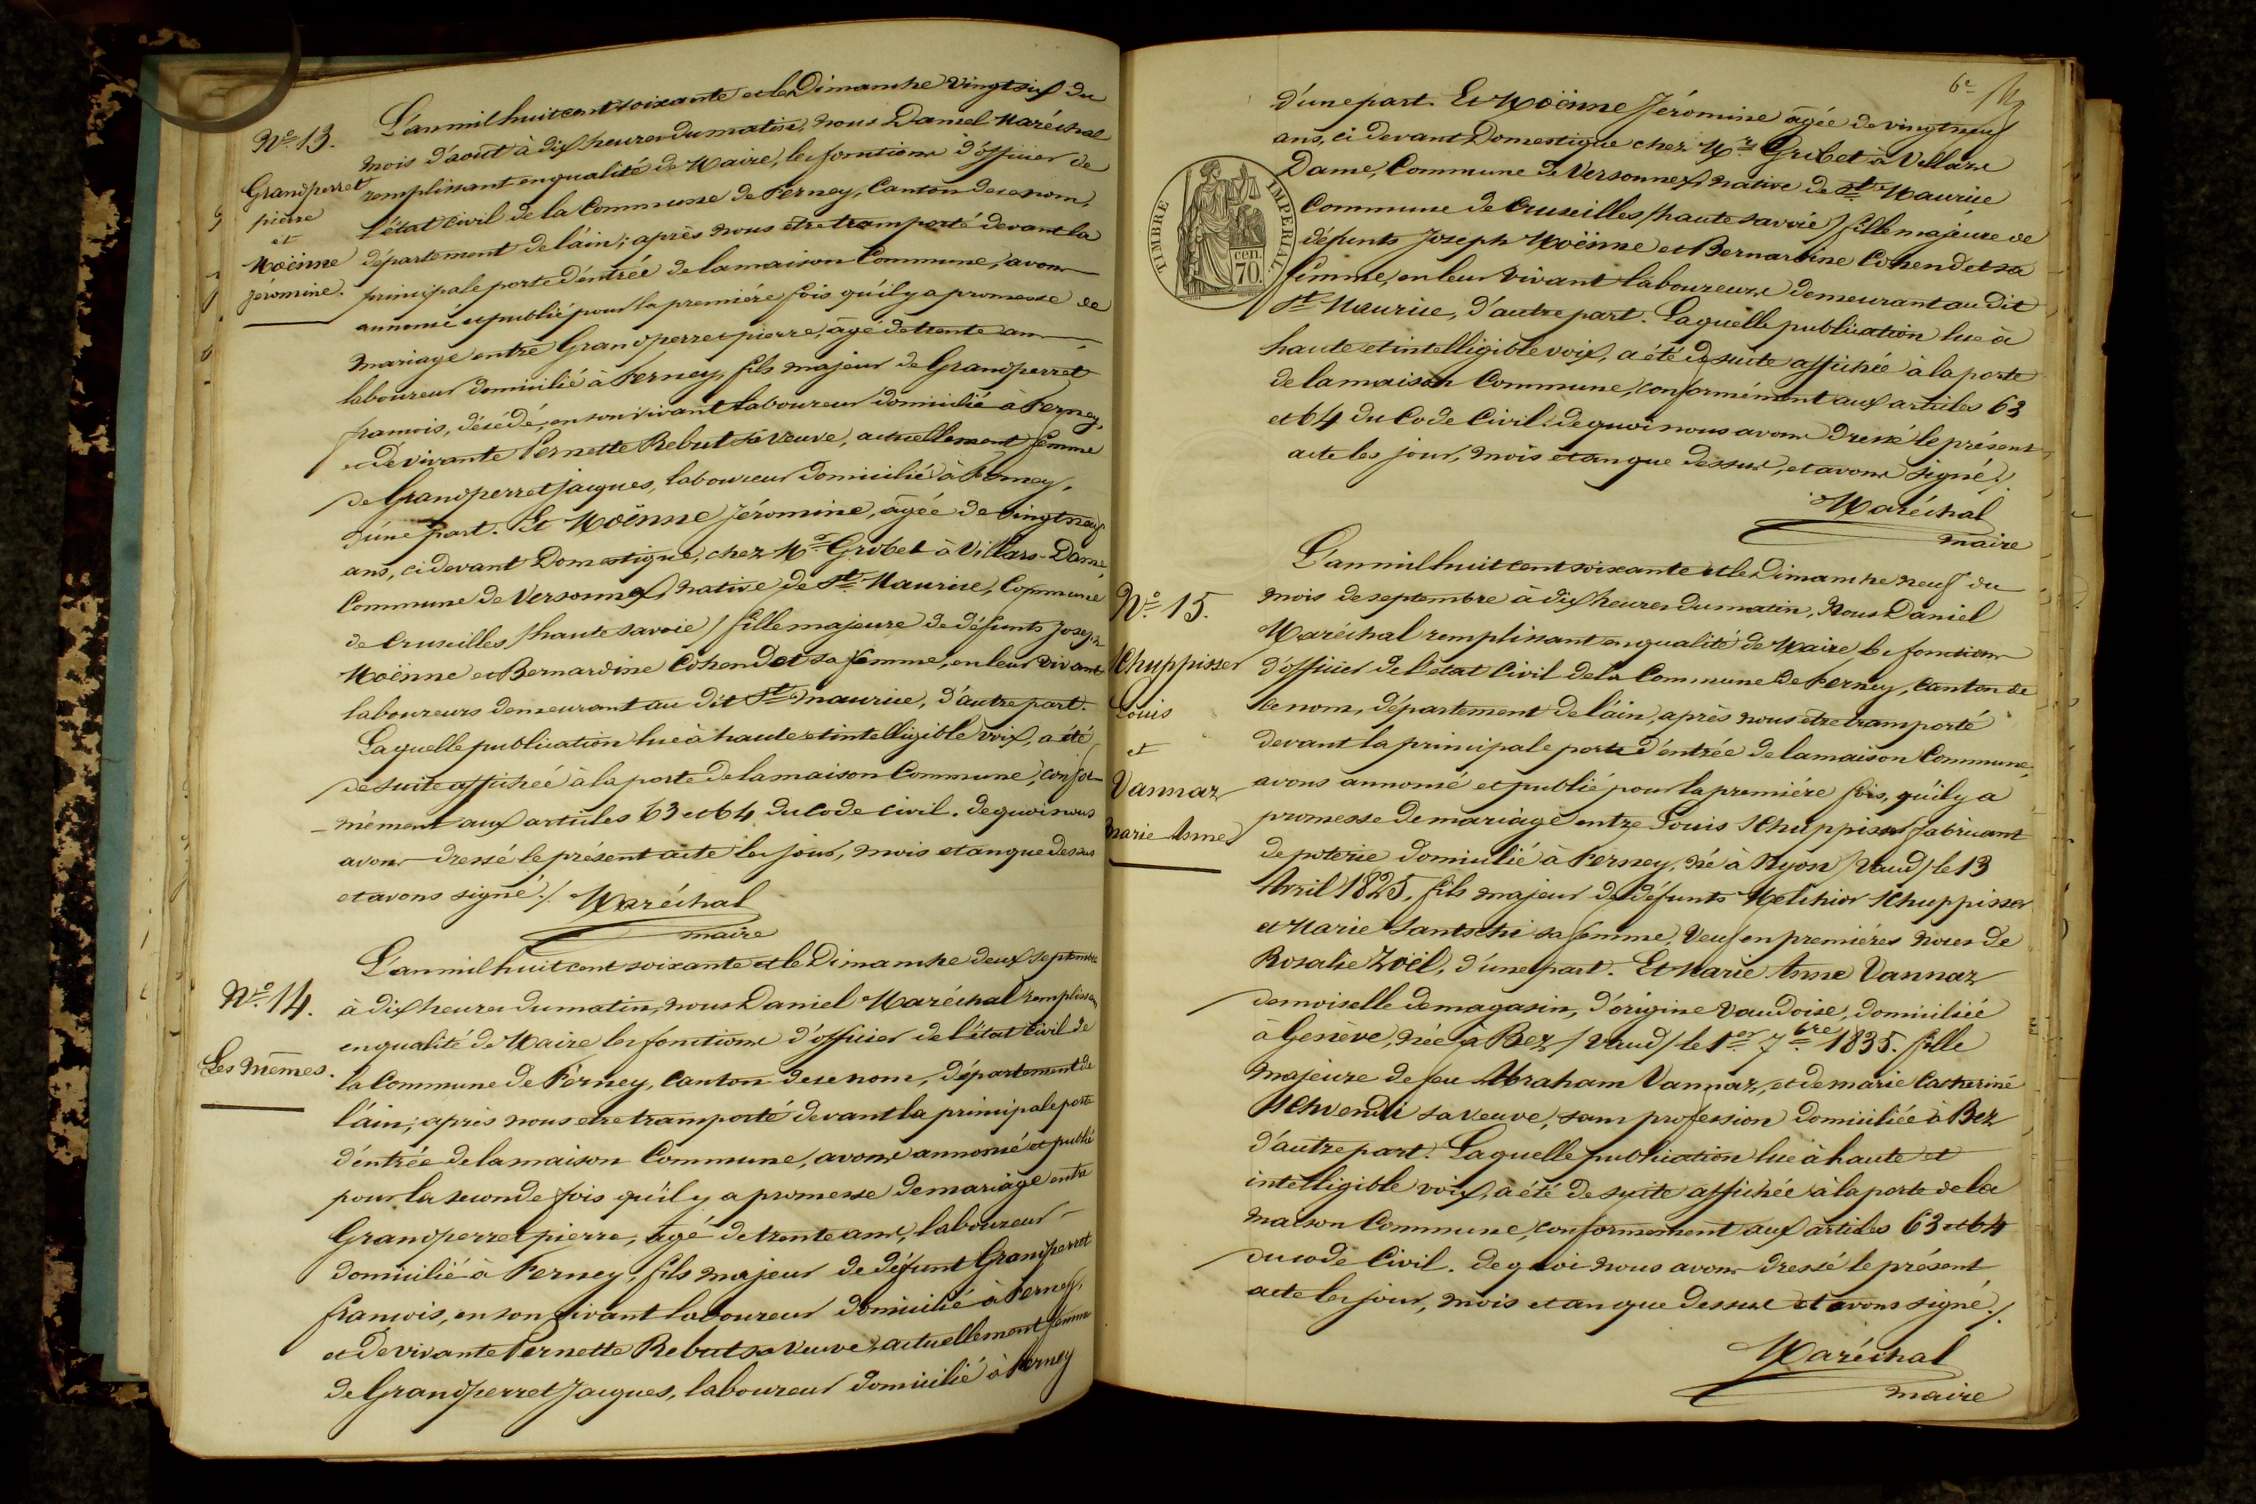 N° 13.
Grandperret
pierre
et
Moënne
Jéromine.
L'an mil huit cent soixante et le Dimanche vingt six du
mois d'août à dix heures du matin, nous Daniel Maréchal
remplissant en qualité de Maire, les fonctions d'officier de
l'état civil de la Commune de Ferney, Canton de ce nom,
département de l'ain; après nous etre transporté devant la
principale porte d'éntrée de la maison Commune, avons
annoncé et publié pour la premiére fois qu'il y a promesse de
mariage entre Grandperret pierre, âgé de trente ans,
laboureur domicilié à Ferney, fils majeur de Grandperret
francois, décédé, en son vivant laboureur domicilié à Ferney,
et de vivante Pernette Rebut sa veuve, actuellement femme
de Grandperret jacques, laboureur domicilié à Ferney,
d'úne part. Et Moënne Jéromine, âgée de vingt neuf
ans, ci devant Domestique, chez Mr Grobet à Villars-Dame,
Commune de Versonnex, native de St Maurice, Commune
de Cruseilles / haute savoie / fille majeure de défunts Joseph
Moënne et Bernardine Cohendet sa femme, en leur vivant
laboureurs demeurant au dit St maurice, d'autre part.
Laquelle publication lue à haute et intelligible voix, a été
de suite affichée à la porte de la maison Commune, confor-
-mément aux articles 63 et 64 du Code civil. de quoi nous
avons dressé le présent acte les jour, mois et an que dessus
et avons signé ./. Maréchal
maire
N° 14.
Les mêmes.
L'an mil huit cent soixante et le Dimanche deux septembre
à dix heures du matin, nous Daniel Maréchal remplissant
en qualité de Maire les fonctions d'officier de l'état civil de
la Commune de Férney, Canton de ce nom, département de
l'ain; après nous etre transporté devant la principale porte
d'éntrée de la maison Commune, avons annoncé et publié
pour la seconde fois qu'il y a promesse de mariage entre
Grandperret pierre, âgé de trente ans, laboureur
domicilié à Ferney, fils majeur de défunt Grandperret
francois, en son vivant laboureur domicilié à Ferney,
et de vivante Pernette Rebut sa veuve, actuellement femme
de Grandperret Jacques, laboureur domicilié à Ferney
6e
TIMBRE IMPERIAL
70 cen.
d'une part. Et Moënne Jéromine âgée de vingt neuf
ans, ci devant Domestique chez Mr Grobet à Villars
Dame, Commune de Versonnex, native de St Maurice
Commune de Cruseilles / haute savoie / fille majeure de
défunts Joseph Moënne et Bernardine Cohendet sa
femme, en leur vivant laboureurs demeurant au dit
St Maurice, d'autre part. Laquelle publication lue à
haute et intelligible voix, a été de suite affichée à la porte
de la maison Commune, conformément aux articles 63
et 64 du Code Civil. de quoi nous avons dressé le présent
acte les jour, mois et an que dessus, et avons signé ./.
Maréchal
maire
N° 15.
Schuppisser
Louis
et
Vannaz
Marie Anne
L'an mil huit cent soixante et le Dimanche neuf du
mois de septembre à dix heures du matin, Nous Daniel
Maréchal remplissant en qualité de Maire, les fonctions
d'officier de l'etat Civil de la Commune de Ferney, Canton de
ce nom, département de l'ain, après nous etre transporté
devant la principale porte d'éntrée de la maison Commune,
avons annoncé et publié pour la premiére fois, qu'il y a
promesse de mariage entre Louis Schuppisser fabricant
de poterie domicilié à Ferney, né à Nyon / Vaud / le 13
Avril 1825, fils majeur de défunts Melchior Schuppisser
et Marie Santschi sa femme, Veuf en premiéres noces de
Rosalie Zoël, d'une part. Et Marie Anne Vannaz
demoiselle de magasin, d'órigine Vaudoise, domiciliée
à Genève, née à Bex / Vaud / le 1er 7bre 1835. fille
majeure de feu Abraham Vannaz, et de marie Catherine
Schwendi sa veuve, sans profession domiciliée à Bex
d'autre part. Laquelle publication lue à haute et
intelligible voix, a été de suite affichée à la porte de la
maison Commune, conformement aux articles 63 et 64
du code Civil. de quoi nous avons dressé le présent
acte les jour, mois et an que dessus et avons signé ./.
Maréchal
maire